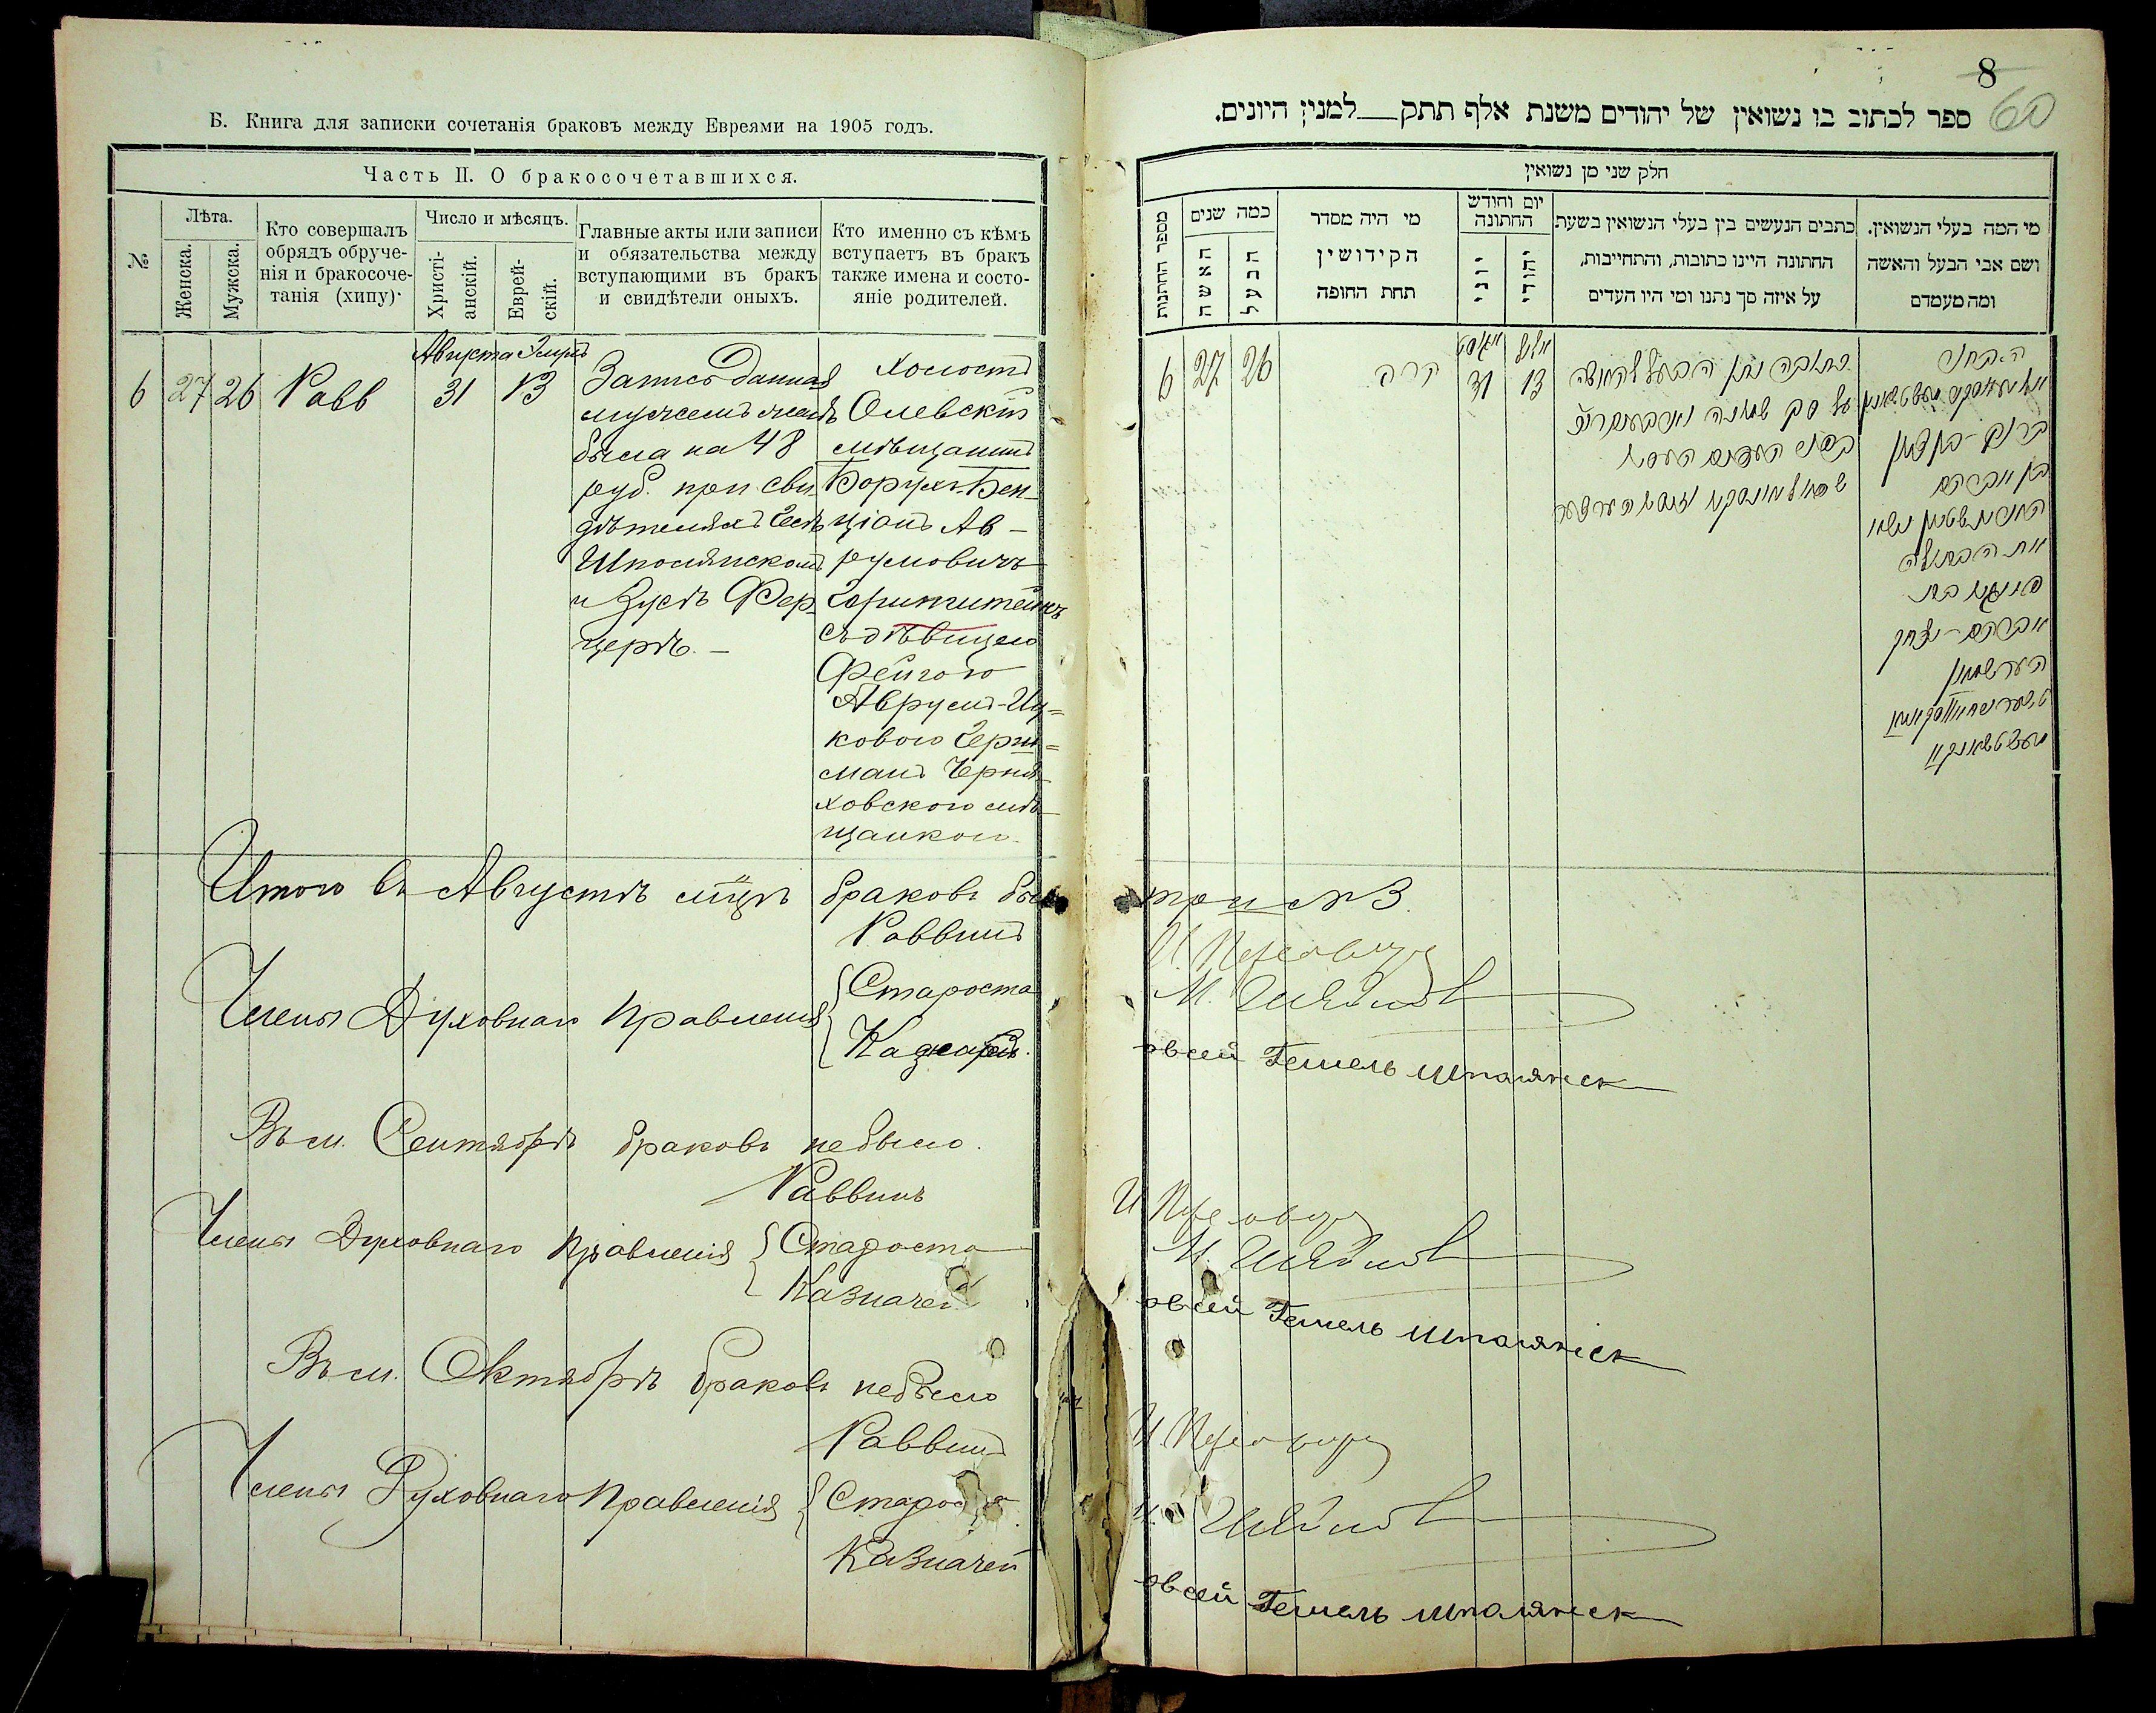 Б. Книга для записки сочетанія браковъ между Евреями на 1905 годъ.
Часть II. О бракосочетавшихся.
№
Лѣта.
Женска.
Мужска.
Кто совершалъ
обрядъ обруче-
нія и бракосоче-
танія (хипу).
Число и мѣсяцъ.
Христі-
анскій.
Еврей-
скій.
Главные акты или записи
и обязательства между
вступающими въ бракъ
и свидѣтели оныхъ.
Кто именно съ кѣмъ
вступаетъ въ бракъ
также имена и состо-
яніе родителей.
6
27
26
Равв
Августа
31
Элулъ
13
Запись данная
мужемъ женѣ
была на 48
руб. при сви-
дѣтеляхъ
Шполянскомъ
и Зусѣ Фер-
церѣ.
Холостъ
Олевскій
мѣщанинъ
Борухъ-Бен-
ціонъ Ав-
румовичъ
съ дѣвицею
Фейгою
Аврумъ-Иц=
ковою Герш=
манъ Черня-
ховскою мѣ-
щанкою.
Итого въ Августѣ м̃цѣ браковъ бы
три №3.
Раввинъ
Члены Духовнаго Правленія
Староста
Казначей.
Овсей Гешель Шполянск
Въ м. Сентябрѣ браковъ небыло.
Раввинъ
Члены Духовнаго Правленія
Староста
Казначей
Овсей Гешель Шполянск
Въ м. Октябрѣ браковъ небыло
Раввинъ
Члены Духовнаго Правленія
Староста
Казначей
Овсей Гешель Шполянск
8
60
ספר לכתוב בו נשואין של יהודים משנת אלף תתק למנין היונים.
חלק שני מן נשואין
מספר החתנות
כמה שנים
האשה
הבעל
מי היה מסדר
הקידושין
תחת החופה
יום וחודש
החתונה
יוני
יהודי
כתבים הנעשים בין בעלי הנשואין בשעת
החתונה היינו כתובות, והתחייבות,
על איזה סך נתנו ומי היו העדים
מי המה בעלי הנשואין.
ושם אבי הבעל והאשה
ומה מעמדם
6
27
26
הרב
אוגוסט
31
אלול
13
כתובה נתן הבעל לאשתו
על סך שמונה וארבעים רו״כ
בפני העדים
הבחור
ברוך-בן ציון
בן אברהם
נשא
את הבתולה
פייגא בת
אברהם-יצחק
הערשמאן